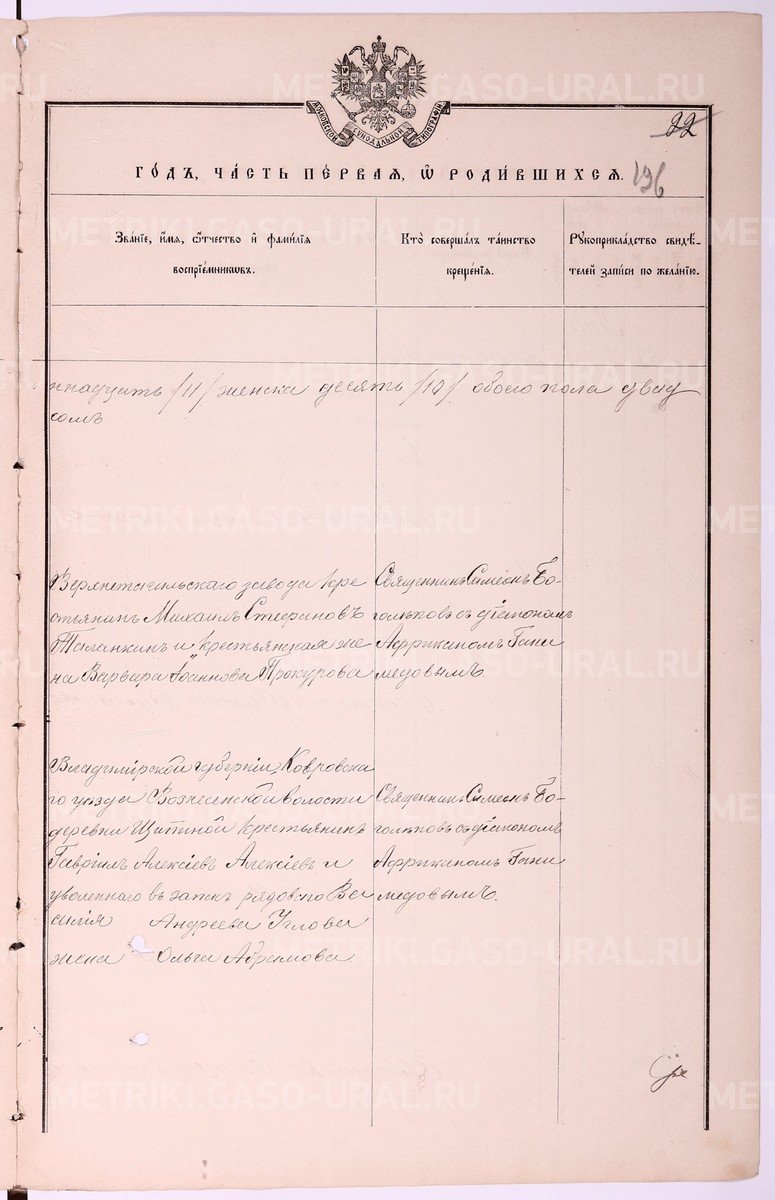 МОСКОВСКОЙ СѴНОДАЛЬНОЙ ТИПОГРАФІИ
22
ГО́ДЪ, ЧА́СТЬ ПЕ́РВАЯ, Ѡ҆ РОДИ́ВШИХСЯ.
126
Зва́нїе, и҆́мя, ѻ҆́тчество и҆ фами́лїя
воспрїе́мникѡвъ.
Кто̀ соверша́лъ та́инство
креще́нїя.
Рꙋкоприкла́дство свидѣ́-
телей за́писи по жела́нїю.
ннадцать /11/ женска десять /10/ обоего пола двад
Верхнетагильскаго завода Кре
стьянинъ Михаилъ Стефановъ
Таланкинъ и крестьянская же
на Варвара Іоаннова Прокурова
Священникъ Симеонъ Бо-
голѣповъ съ діакономъ
Африканомъ Гани
медовымъ.
Владимірской губерніи, Ковровска
го уѣзда Вознесенской волости
деревни Щитиной крестьянинъ
Гавріилъ Алексіевъ Алексіевъ и
уволеннаго въ запасъ рядоваго Ва
силія Андреева Углова
жена Ольга Абрамова.
Священникъ Симеонъ Бо-
голѣповъ съ діакономъ
Африканомъ Гани
медовымъ.
METRIKI.GASO-URAL.RU